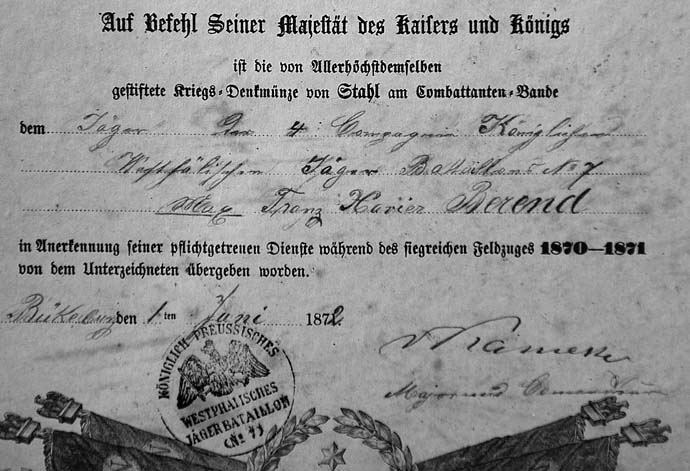 Auf Befehl Seiner Majestät des Kaisers und Königs
ist die von Allerhöchstdemselben
gestiftete Kriegs-Denkmünze von Stahl am Combattanten-Bande
dem Jäger der 4 Compagnie Königlichen
Westfälischen Jäger Bataillons No 7
Max Franz Xavier Berend
in Anerkennung seiner pflichtgetreuen Dienste während des siegreichen Feldzuges 1870—1871
von dem Unterzeichneten übergeben worden.
Bükeburg den 1ten Juni 1872.
KÖNIGLICH-PREUSSISCHES
WESTPHÄLISCHES
JÄGERBATAILLON
(No 7)
v Kameke
Major und